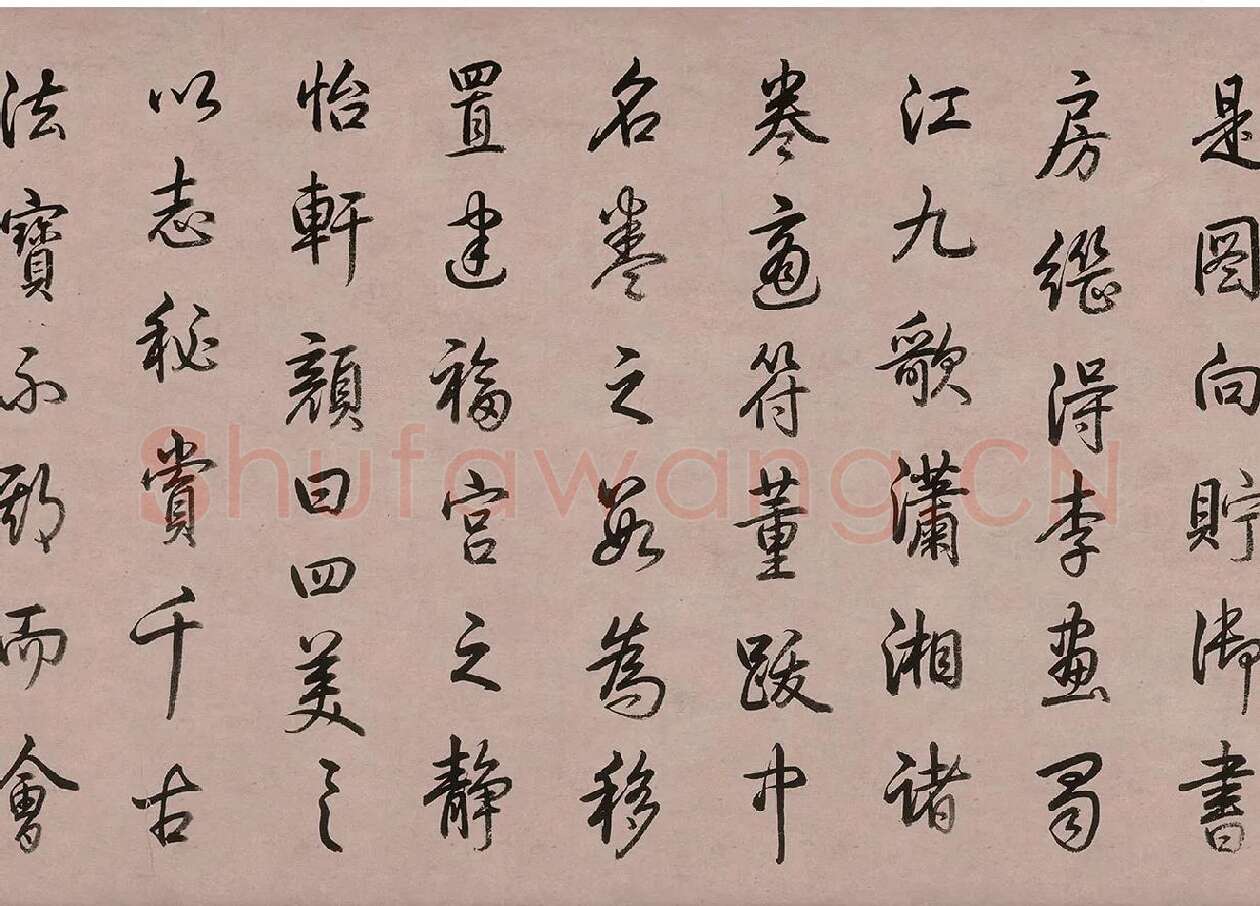 是圖向貯御書
房繼得李畫蜀
江九歌瀟湘諸
卷適符董跋中
名卷之數為移
置建福宮之静
怡軒顔曰四美之
以志秘賞千古
法寳不期而會
Shufawang.CN